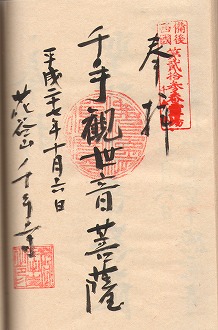 奉拝
備後
西國
第貳拾参番
千手觀世音菩薩
平成二十七年十月六日
花谷山千手寺